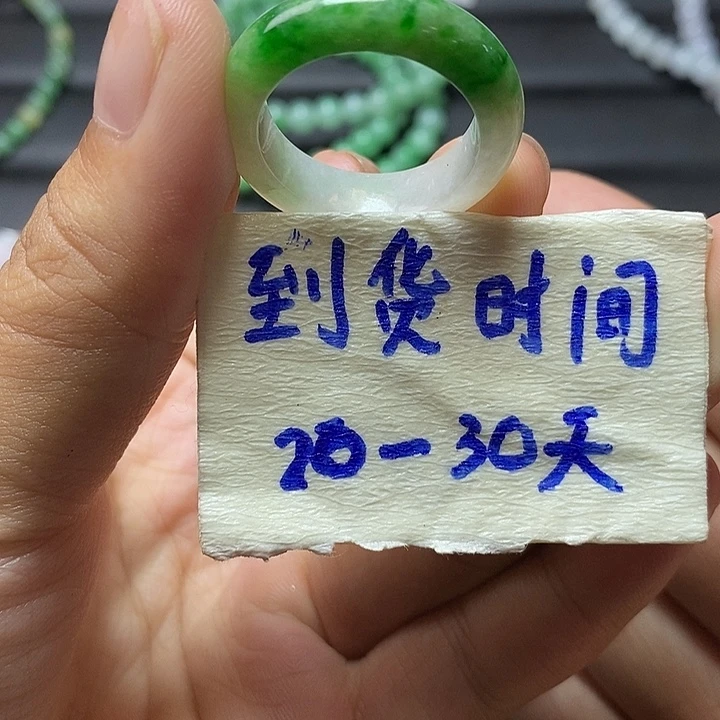 到货时间
20-30天